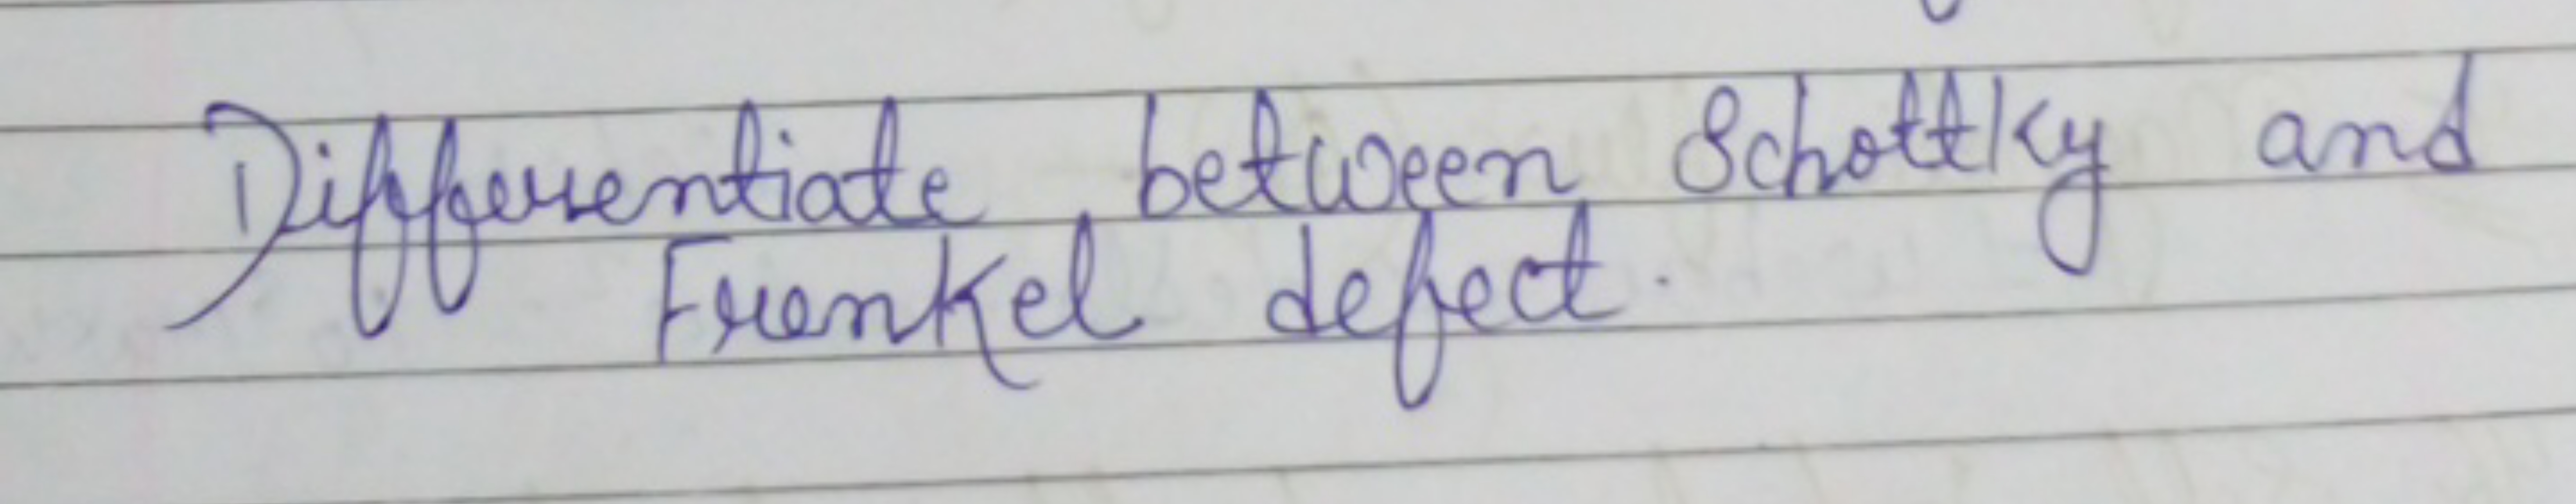 Differentiate between Schottky and
Frenkel defect.